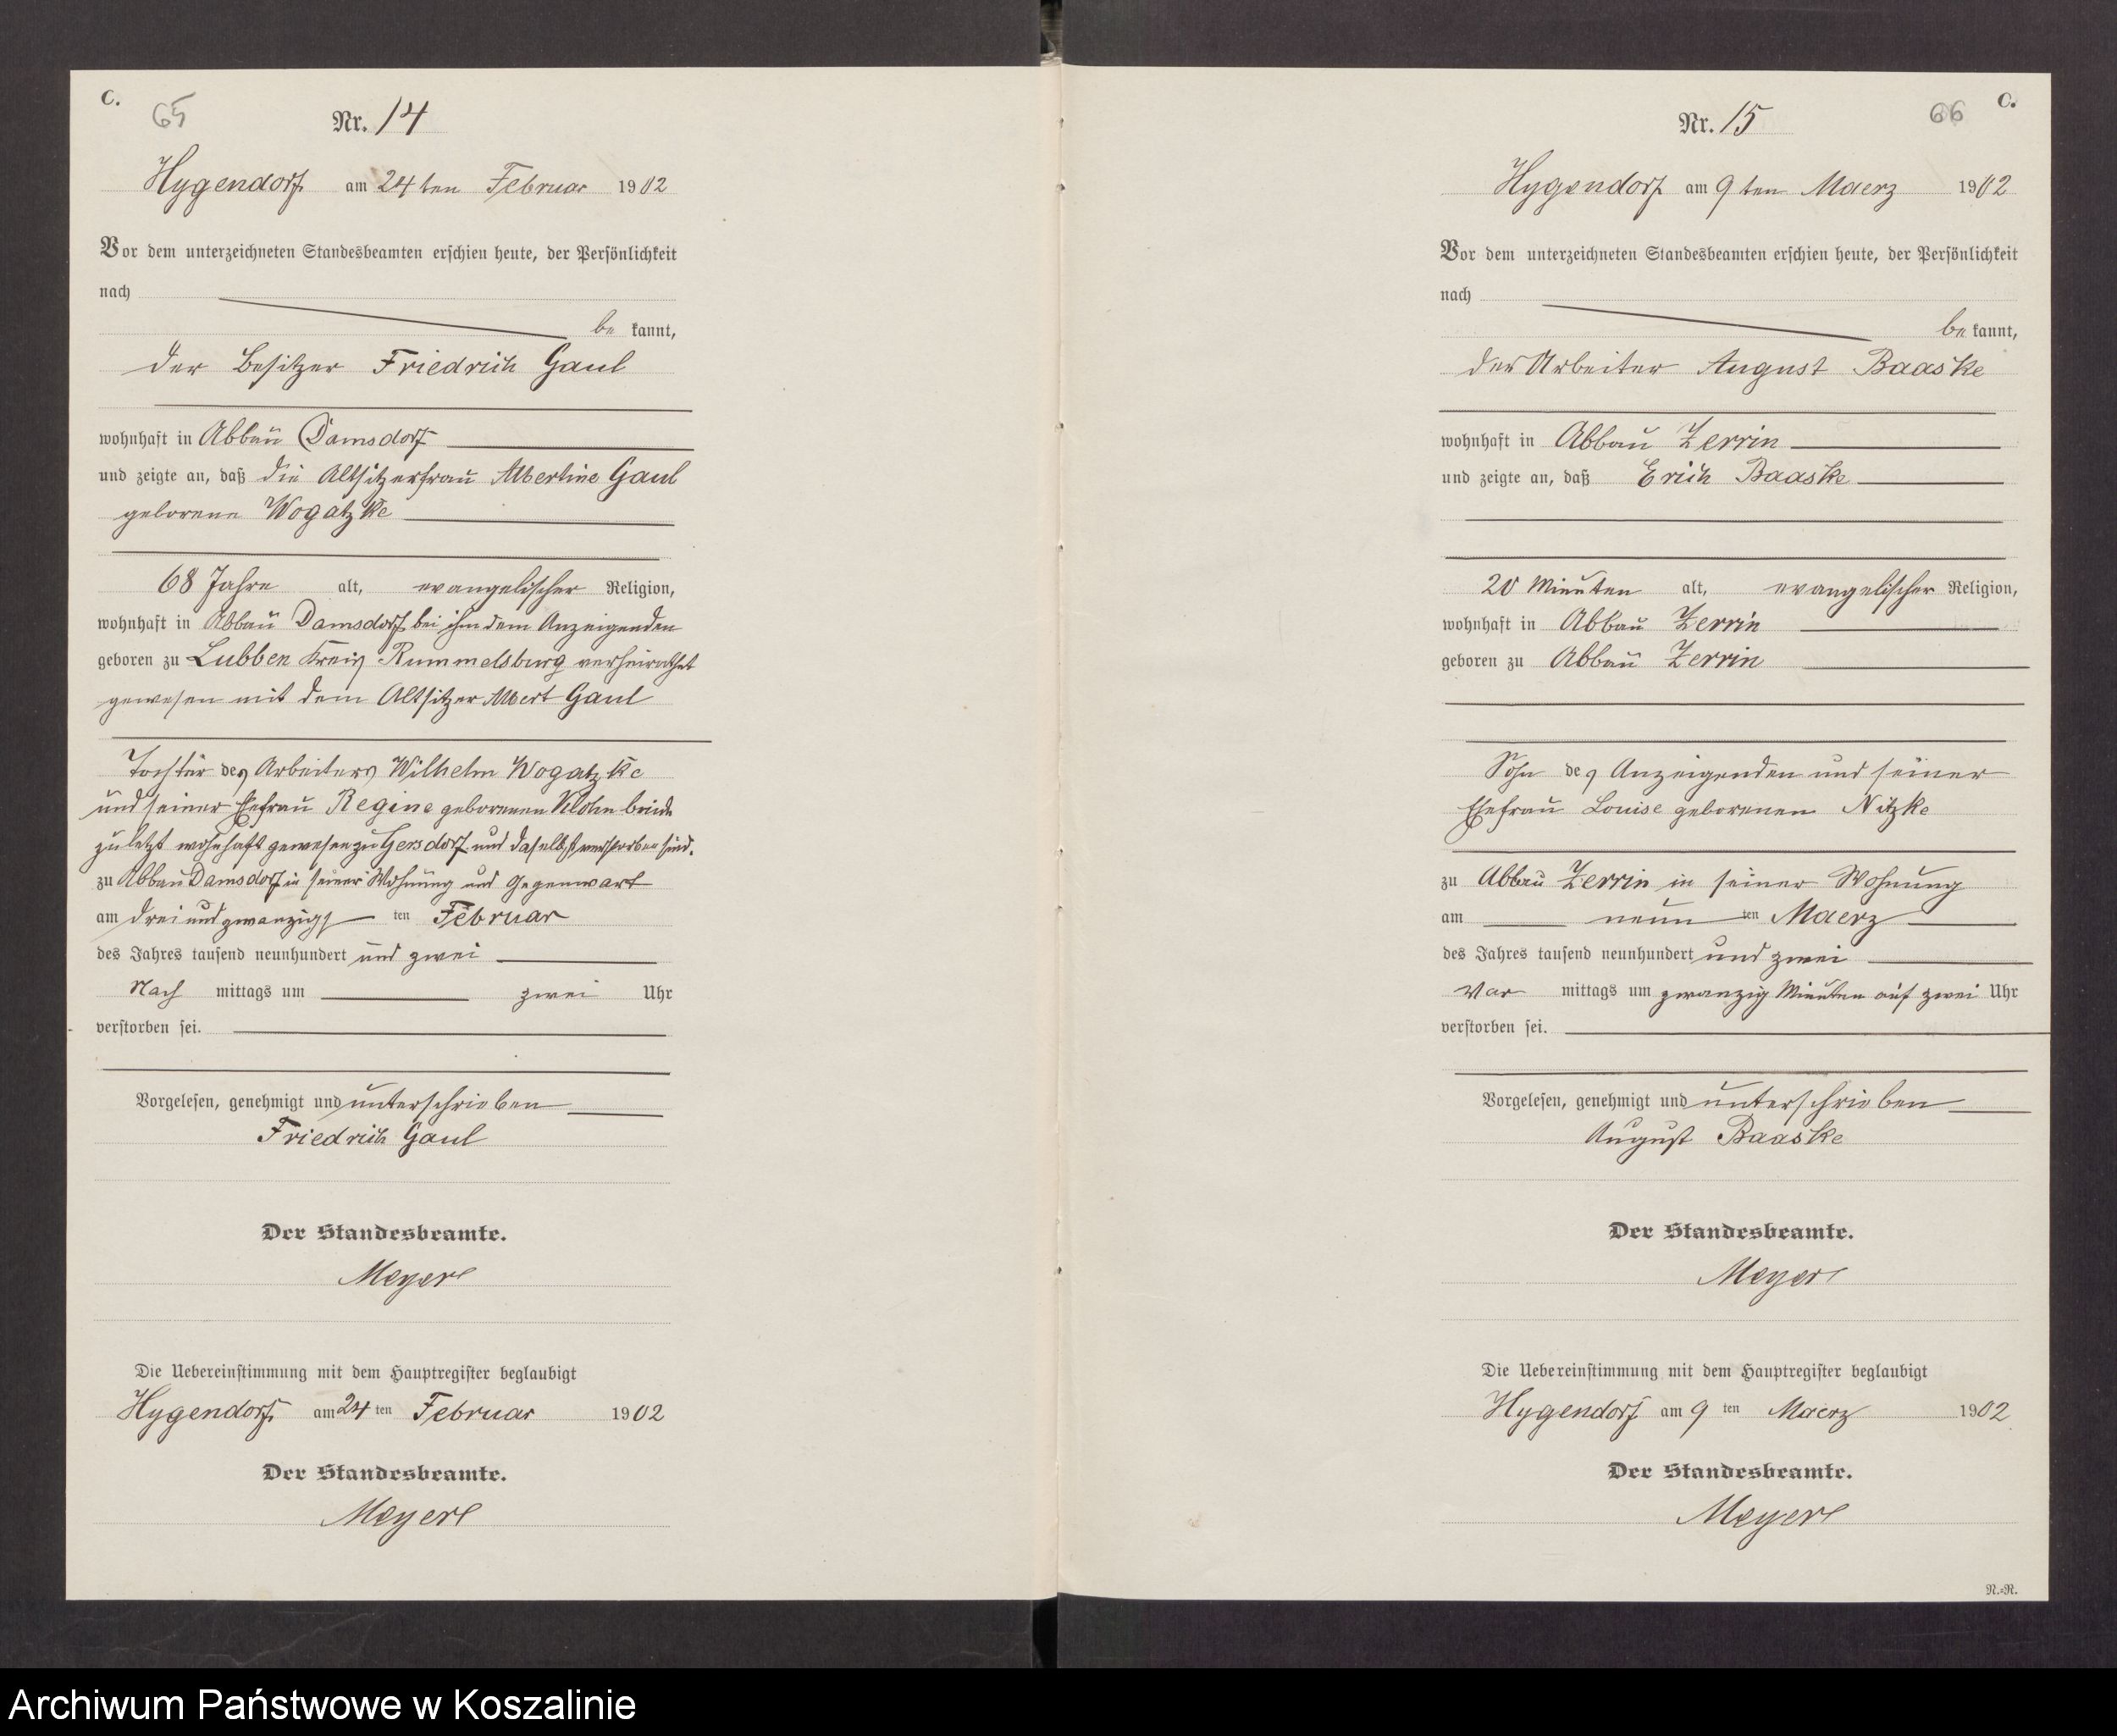 C.
65
Nr. 14
Hygendorf am 24ten Februar 1902
Vor dem unterzeichneten Standesbeamten erschien heute, der Persönlichkeit
nach
be kannt,
der Besitzer Friedrich Gaul
wohnhaft in Abbau Damsdorf
und zeigte an, daß die Altsitzerfrau Albertine Gaul
geborene Wogatzke
68 Jahre alt, evangelischer Religion,
wohnhaft in Abbau Damsdorf bei ihm dem Anzeigenden
geboren zu Lubben Kreis Rummelsburg verheirathet
gewesen mit dem Altsitzer Albert Gaul
Tochter des Arbeiters Wilhelm Wogatzke
und seiner Ehefrau Regine geborenen Klohn beide
zuletzt wohnhaft gewesen zu Gersdorf und daselbst verstorben sind.
zu Abbau Damsdorf in seiner Wohnung und Gegenwart
am drei und zwanzigs ten Februar
des Jahres tausend neunhundert und zwei
Nach mittags um zwei Uhr
verstorben sei.
Vorgelesen, genehmigt und unterschrieben
Friedrich Gaul
Der Standesbeamte.
Meyer
Die Uebereinstimmung mit dem Hauptregister beglaubigt
Hygendorf am 24 ten Februar 1902
Der Standesbeamte.
Meyer
C.
66
Nr. 15
Hygendorf am 9ten Maerz 1902
Vor dem unterzeichneten Standesbeamten erschien heute, der Persönlichkeit
nach
be kannt,
der Arbeiter August Baaske
wohnhaft in Abbau Zerrin
und zeigte an, daß Erich Baaske
20 Minuten alt, evangelischer Religion,
wohnhaft in Abbau Zerrin
geboren zu Abbau Zerrin
Sohn des Anzeigenden und seiner
Ehefrau Louise geborenen Nitzke
zu Abbau Zerrin in seiner Wohnung
am neun ten Maerz
des Jahres tausend neunhundert und zwei
Vor mittags um zwanzig Minuten auf zwei Uhr
verstorben sei.
Vorgelesen, genehmigt und unterschrieben
August Baaske
Der Standesbeamte.
Meyer
Die Uebereinstimmung mit dem Hauptregister beglaubigt
Hygendorf am 9 ten Maerz 1902
Der Standesbeamte.
Meyer
N.=R.
Archiwum Państwowe w Koszalinie